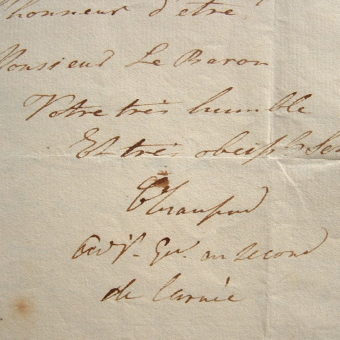 l'honneur d'etre
Monsieur Le Baron
Votre très humble
Et très obeisst Se
en second
de l'armée